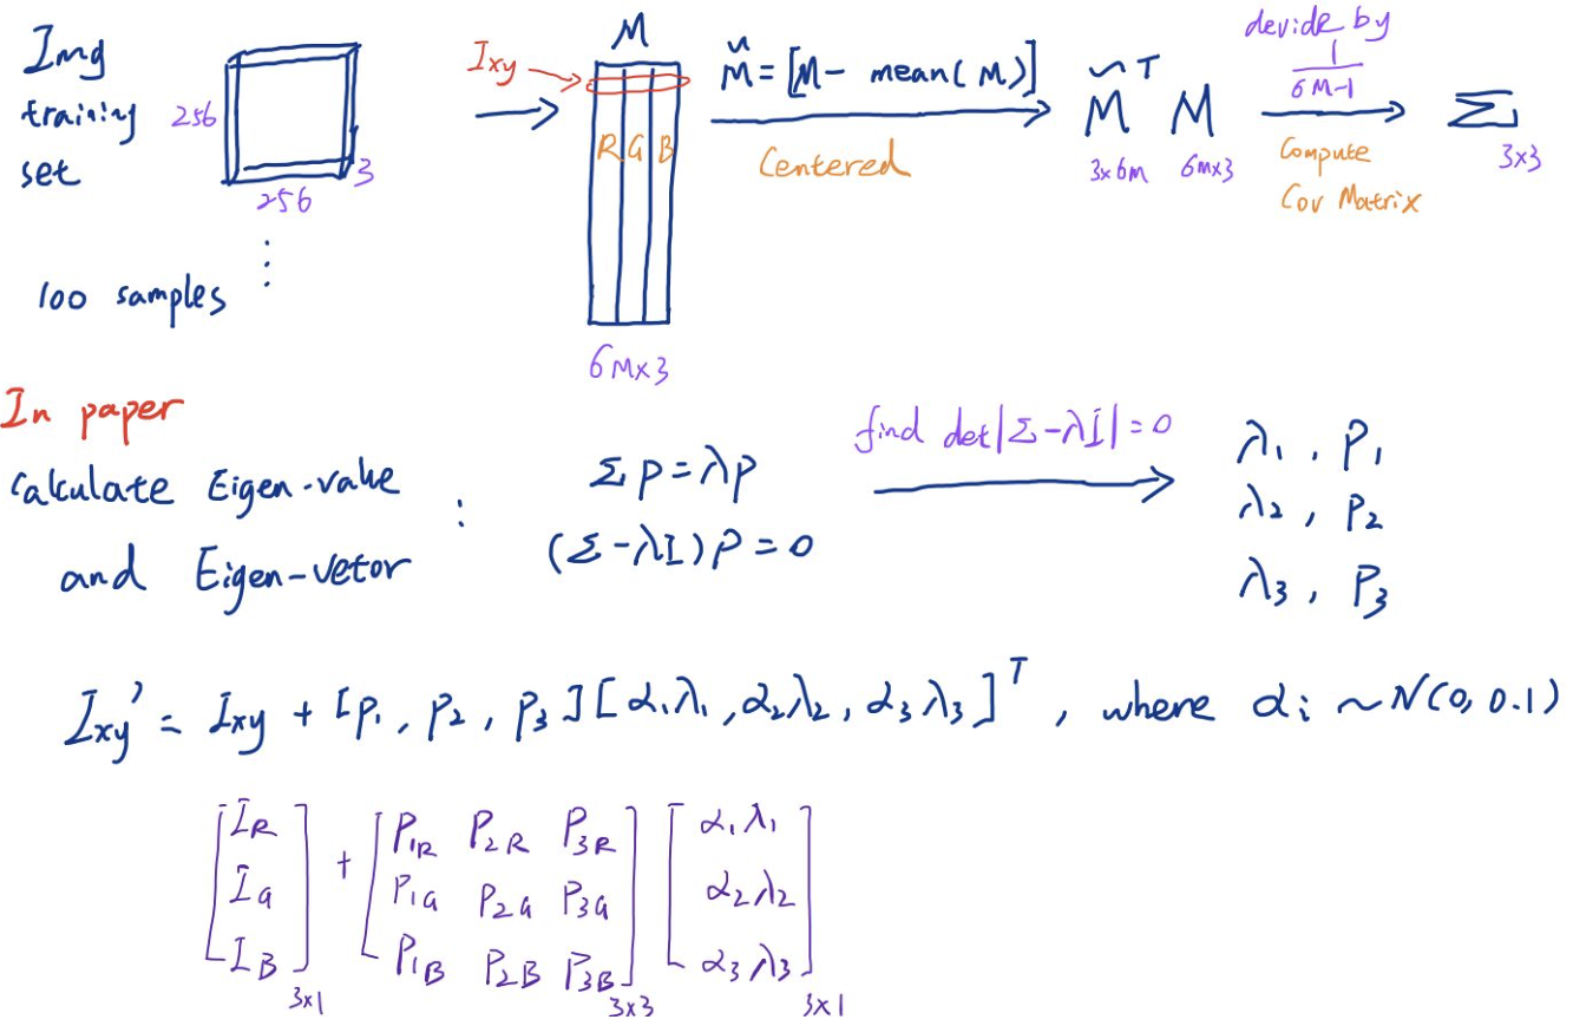 Img
training
set
256
256
3
100 samples
Ixy
M
R G B
6M×3
M̃ = [M - mean(M)]
Centered
M̃ᵀ M
3×6M 6M×3
devide by
1
6M-1
Compute
Cov Matrix
Σ
3×3
In paper
Calculate Eigen-value
and Eigen-vetor
:
Σp = λp
(Σ-λI)p = 0
find det|Σ-λI| = 0
λ₁, P₁
λ₂, P₂
λ₃, P₃
Ixy' = Ixy + [p₁, p₂, p₃][α₁λ₁, α₂λ₂, α₃λ₃]ᵀ, where αi ~ N(0, 0.1)
[I_R I_G I_B] 3×1
+
[P₁R P₂R P₃R
P₁G P₂G P₃G
P₁B P₂B P₃B] 3×3
[α₁λ₁
α₂λ₂
α₃λ₃] 3×1